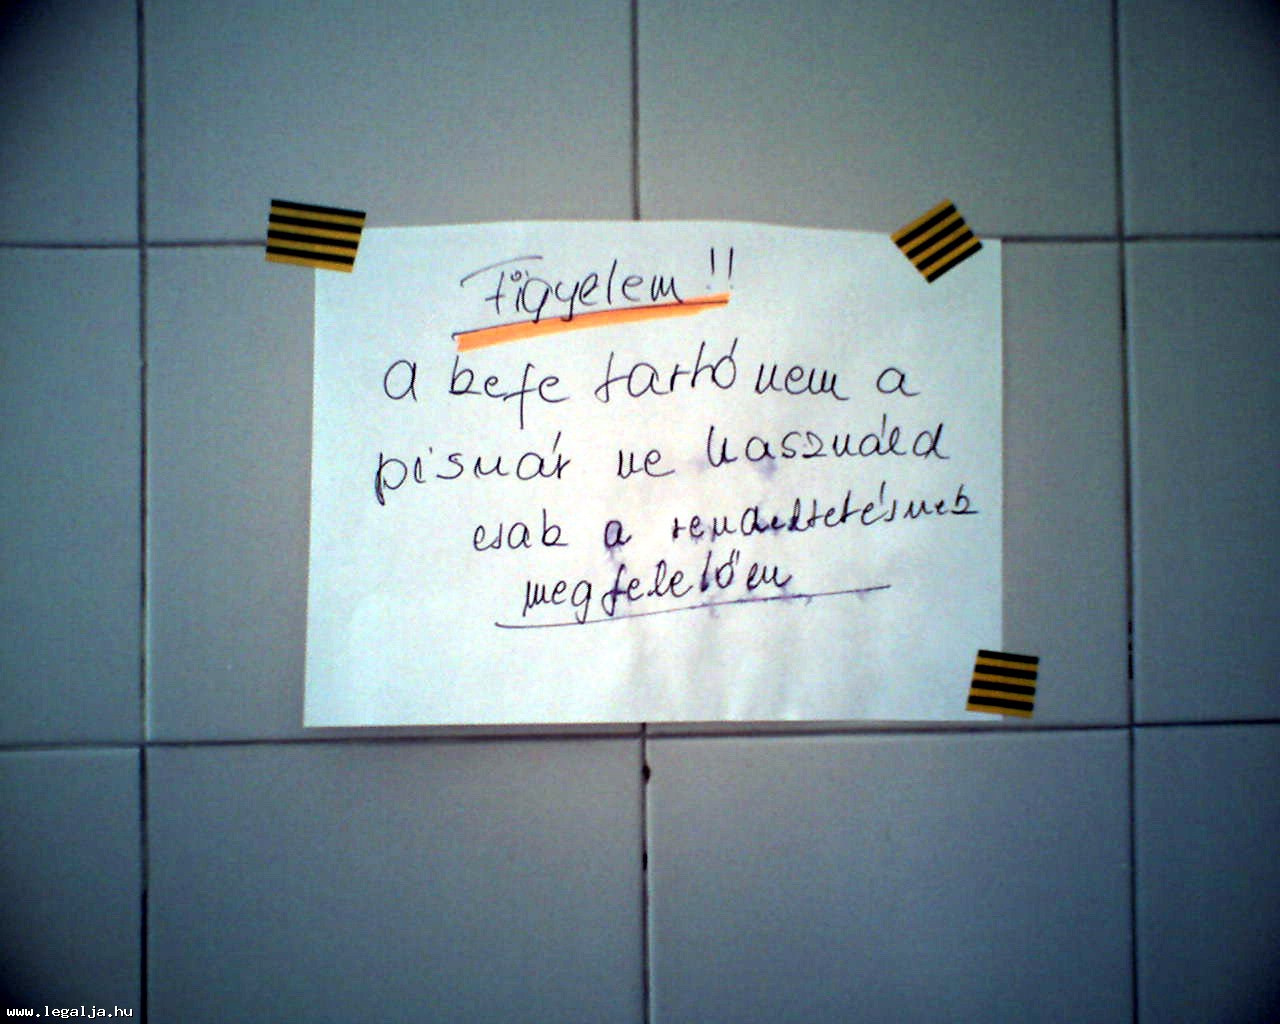 Figyelem!!
a kefe tartó nem a
pisuár ne használd
csak a rendeltetésnek
megfelelően
www.legalja.hu